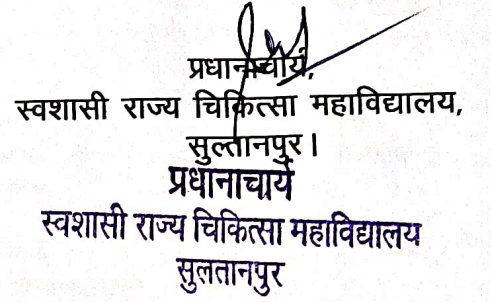 प्रधानाचार्य,
स्वशासी राज्य चिकित्सा महाविद्यालय,
सुल्तानपुर।
प्रधानाचार्य
स्वशासी राज्य चिकित्सा महाविद्यालय
सुलतानपुर